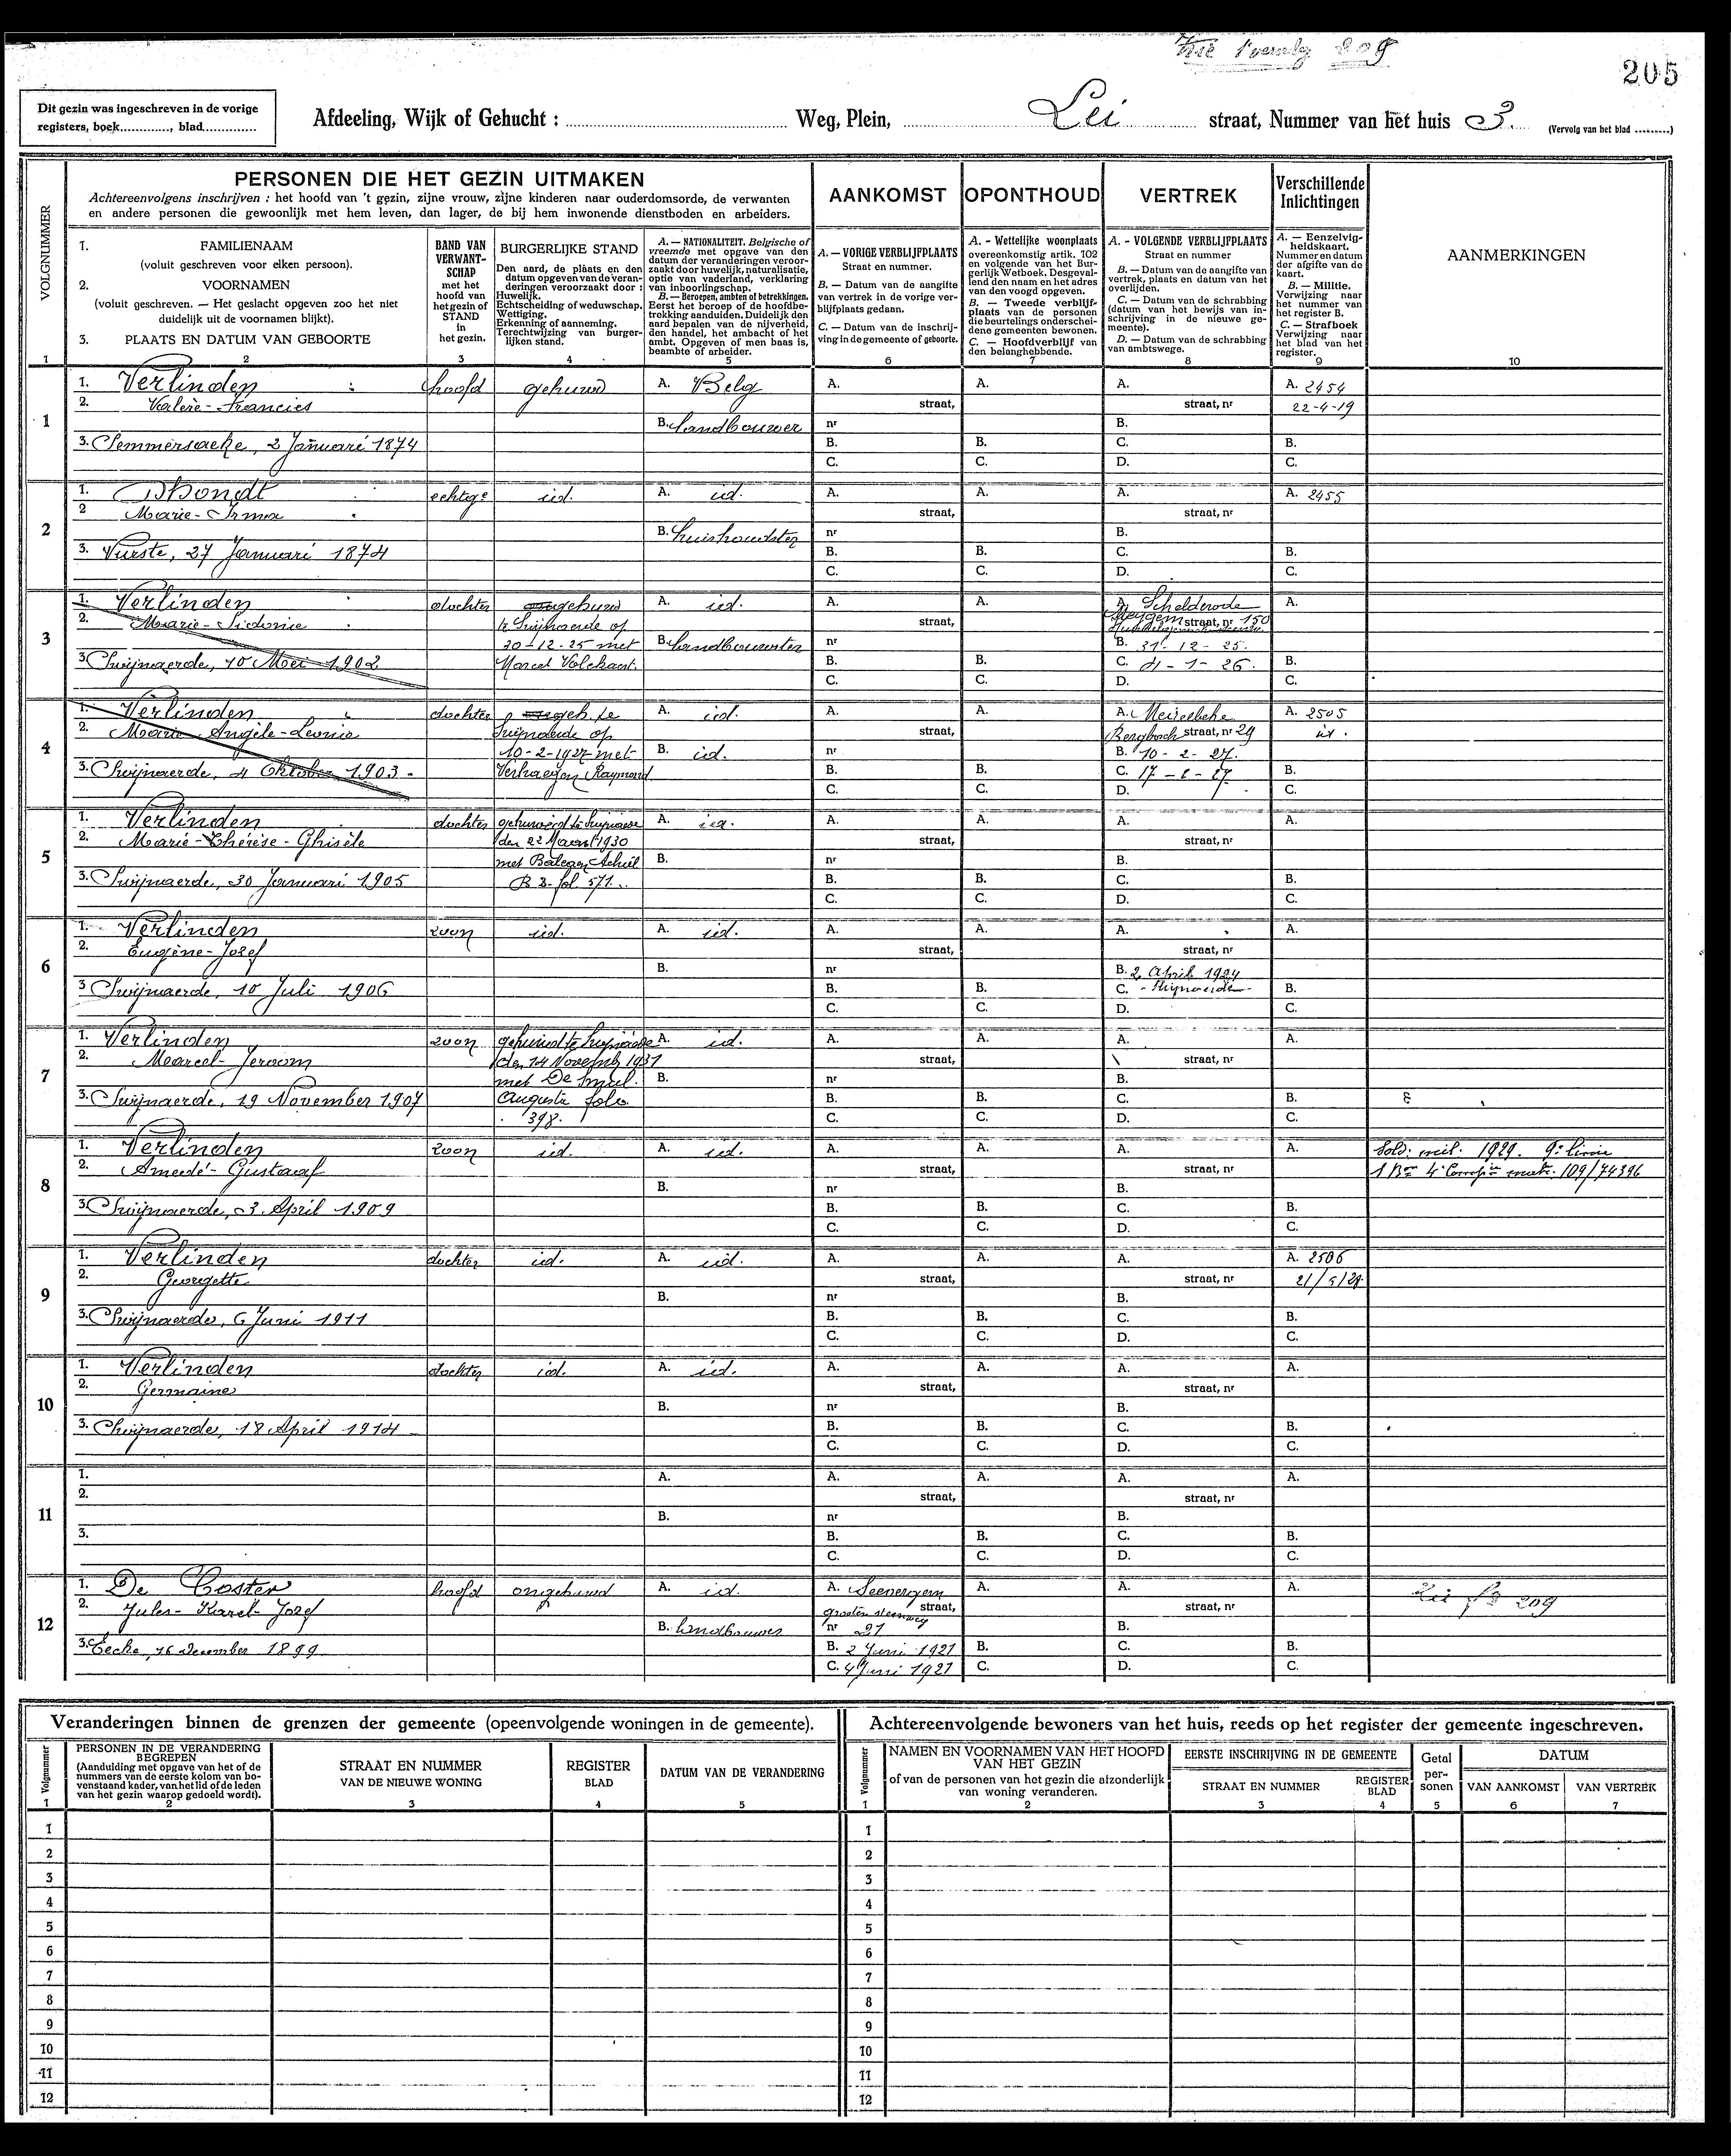 209
205
Dit gezin was ingeschreven in de vorige
registers, boek............, blad..............
Afdeeling, Wijk of Gehucht : .......... Weg, Plein, Lei straat, Nummer van het huis 3. (Vervolg van het blad ..........)
PERSONEN DIE HET GEZIN UITMAKEN
Achtereenvolgens inschrijven : het hoofd van 't gezin, zijne vrouw, zijne kinderen naar ouderdomsorde, de verwanten
en andere personen die gewoonlijk met hem leven, dan lager, de bij hem inwonende dienstboden en arbeiders.
AANKOMST
OPONTHOUD
VERTREK
Verschillende
Inlichtingen
AANMERKINGEN
VOLGNUMMER
1
1. FAMILIENAAM
(voluit geschreven voor elken persoon).
2. VOORNAMEN
(voluit geschreven. — Het geslacht opgeven zoo het niet
duidelijk uit de voornamen blijkt).
3. PLAATS EN DATUM VAN GEBOORTE
2
BAND VAN
VERWANT-
SCHAP
met het
hoofd van
het gezin of
STAND
in
het gezin.
3
BURGERLIJKE STAND
Den aard, de plaats en den
datum opgeven van de veran-
deringen veroorzaakt door :
Huwelijk.
Echtscheiding of weduwschap.
Wettiging.
Erkenning of aanneming.
Terechtwijzing van burger-
lijken stand.
4
A. — NATIONALITEIT. Belgische of
vreemde met opgave van den
datum der veranderingen veroor-
zaakt door huwelijk, naturalisatie,
optie van vaderland, verklaring
van inboorlingschap.
B. — Beroepen, ambten of betrekkingen.
Eerst het beroep of de hoofdbe-
trekking aanduiden. Duidelijk den
aard bepalen van de nijverheid,
den handel, het ambacht of het
ambt. Opgeven of men baas is,
beambte of arbeider.
5
A. — VORIGE VERBLIJFPLAATS
Straat en nummer.
B. — Datum van de aangifte
van vertrek in de vorige ver-
blijfplaats gedaan.
C. — Datum van de inschrij-
ving in de gemeente of geboorte.
6
A. - Wettelijke woonplaats
overeenkomstig artik. 102
en volgende van het Bur-
gerlijk Wetboek. Desgeval-
lend den naam en het adres
van den voogd opgeven.
B. — Tweede verblijf-
plaats van de personen
die beurtelings onderschei-
dene gemeenten bewonen.
C. — Hoofdverblijf van
den belanghebbende.
7
A. - VOLGENDE VERBLIJFPLAATS
Straat en nummer
B. — Datum van de aangifte van
vertrek, plaats en datum van het
overlijden.
C. — Datum van de schrabbing
(datum van het bewijs van in-
schrijving in de nieuwe ge-
meente).
D. — Datum van de schrabbing
van ambtswege.
8
A. — Eenzelvig-
heidskaart.
Nummer en datum
der afgifte van de
kaart.
B. — Militie.
Verwijzing naar
het nummer van
het register B.
C. — Strafboek
Verwijzing naar
het blad van het
register.
9
10
1
1. Verlinden hoofd gehuwd A. Belg A. A. A. A. 2454
2. Valère-Francies straat, straat, nr 22-4-19
B. Landbouwer nr B.
3. Semmersaeke, 2 Januari 1874 B. B. C. B.
C. C. D. C.
2
1. D'hondt echtge id. A. id. A. A. A. A. 2455
2 Marie-Irma straat, straat, nr
B. huishoudster nr B.
3. Vurste, 27 Januari 1874 B. B. C. B.
C. C. D. C.
3
1. Verlinden dochter gehuwd A. id. A. A. A. Schelderode A.
2. Marie-Sidonie te Swijnaerde op straat, straat, nr 150
30-12-25 met B. Landbouwster nr B. 31-12-25.
3 Swijnaerde, 10 Mei 1902 Marcel Volckaert. B. B. C. 4-1-26. B.
C. C. D. C.
4
1. Verlinden dochter geh. te A. id. A. A. A. Meirelbeke A. 2505
2. Marie Angèle-Leonie Swijnaerde op straat, Bergbosch straat, nr 29 id.
10-2-1927 met B. id. nr B. 10-2-27.
3. Swijnaerde, 4 Oktober 1903 - Verhaegen Raymond B. B. C. 17-2-27. B.
C. C. D. C.
5
1. Verlinden dochter gehuwd te Swijnaerde A. id. A. A. A. A.
2. Marie-Thérèse-Ghisèle den 22 Maart 1930 straat, straat, nr
met Balcaen Achiel B. nr B.
3. Swijnaerde, 30 Januari 1905 R B. fol. 571. B. B. C. B.
C. C. D. C.
6
1. Verlinden zoon id. A. id. A. A. A. A.
2. Eugène-Jozef straat, straat, nr
B. nr B. 2 April 1924
3 Swijnaerde, 10 Juli 1906 B. B. C. - Swijnaerde - B.
C. C. D. C.
7
1. Verlinden zoon gehuwd te Swijnaerde A. id. A. A. A. A.
2. Marcel-Jeroom den 14 Novemb 1931 straat, straat, nr
met De Smul. B. nr B.
3. Swijnaerde, 19 November 1907 Augusta folo. B. B. C. B.
398. C. C. D. C.
8
1. Verlinden zoon id. A. id. A. A. A. A. Sold. mil. 1929. 9e linie
2. Amedé-Gustaaf straat, straat, nr 1 Bon 4e Compie matr. 109/74396
B. nr B.
3. Swijnaerde, 3 April 1909 B. B. C. B.
C. C. D. C.
9
1. Verlinden dochter id. A. id. A. A. A. A. 2506
2. Georgette straat, straat, nr 21/5/29
B. nr B.
3. Swijnaerde, 6 Juni 1911 B. B. C. B.
C. C. D. C.
10
1. Verlinden dochter id. A. id. A. A. A. A.
2. Germaine straat, straat, nr
B. nr B.
3. Swijnaerde, 18 April 1914 B. B. C. B.
C. C. D. C.
11
1. A. A. A. A. A.
2. straat, straat, nr
B. nr B.
3. B. B. C. B.
C. C. D. C.
12
1. De Coster hoofd ongehuwd A. id. A. Seevergem A. A. A. Zie fo 209
2. Jules-Karel-Jozef grooten steenweg straat, straat, nr
B. landbouwer nr 21 B.
3. Eecke, 16 December 1899 B. 2 Juni 1921 B. C. B.
C. 4 Juni 1921 C. D. C.
Veranderingen binnen de grenzen der gemeente (opeenvolgende woningen in de gemeente).
Volgnummer
1
PERSONEN IN DE VERANDERING
BEGREPEN
(Aanduiding met opgave van het of de
nummers van de eerste kolom van bo-
venstaand kader, van het lid of de leden
van het gezin waarop gedoeld wordt).
2
STRAAT EN NUMMER
VAN DE NIEUWE WONING
3
REGISTER
BLAD
4
DATUM VAN DE VERANDERING
5
1
2
3
4
5
6
7
8
9
10
11
12
Achtereenvolgende bewoners van het huis, reeds op het register der gemeente ingeschreven.
Volgnummer
1
NAMEN EN VOORNAMEN VAN HET HOOFD
VAN HET GEZIN
of van de personen van het gezin die afzonderlijk
van woning veranderen.
2
EERSTE INSCHRIJVING IN DE GEMEENTE
STRAAT EN NUMMER
3
REGISTER
BLAD
4
Getal
per-
sonen
5
DATUM
VAN AANKOMST
6
VAN VERTREK
7
1
2
3
4
5
6
7
8
9
10
11
12